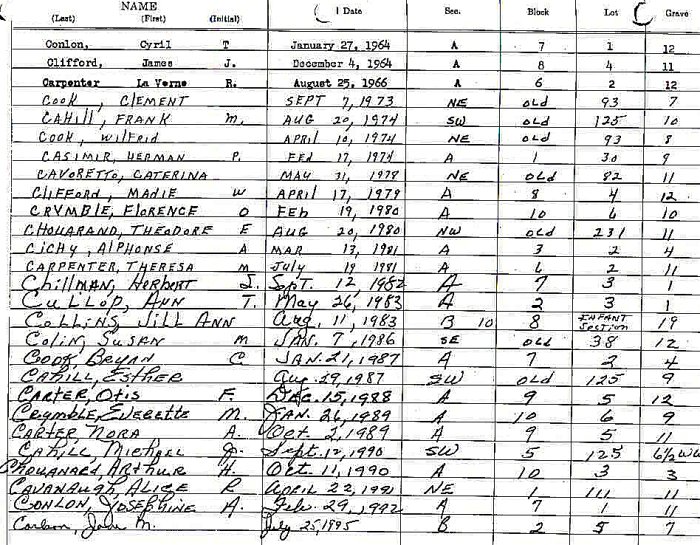 NAME
(Last) (First) (Initial) Date Sec. Block Lot Grave
Conlon, Cyril T January 27, 1964 A 7 1 12
Clifford, James J. December 4, 1964 A 8 4 11
Carpenter La Verne R. August 25, 1966 A 6 2 12
Cook, CLEMENT SEPT 7, 1973 NE OLD 93 7
CAHill, FRANK M. AUG 20, 1974 SW OLD 125 10
Cook, Wilfrid APRIL 10, 1974 NE OLD 93 8
CASIMIR, HERMAN P. FEB 17, 1974 A 1 30 9
CAVORETTO, CATERINA MAY 31, 1978 NE OLD 82 11
CLIFFORD, MADIE W APRIL 17, 1979 A 8 4 12
CRYMBLE, FLORENCE O FEB 19, 1980 A 10 6 10
CHOUARAND, THEODORE E AUG 20, 1980 NW OLD 231 11
CICHY, ALPHONSE A MAR 13, 1981 A 3 2 4
CARPENTER, THERESA M July 19 1981 A 6 2 11
Chillman, Herbert J. Sept. 12, 1982 A 7 3 1
CULLOP, ANN T. May 26, 1983 A 2 3 1
Collins, Jill ANN Aug. 11, 1983 B 10 8 INFANT Section 19
Colin, Susan M JAN. 7, 1986 SE OLD 38 12
Cook, Bryan C. JAN. 21, 1987 A 7 2 4
CAHILL, ESTHER Aug. 29, 1987 SW OLD 125 9
CARTER, Otis F. Dec. 15, 1988 A 9 5 12
Crymble, Everette M. JAN. 26, 1989 A 10 6 9
CARTER, NORA A. Oct. 2, 1989 A 9 5 11
CAHILL, Michael J. Sept. 1990 SW 5 125
CHOUANARD, ARTHUR H. Oct. 11, 1990 A 10 3 3
CAVANAUGH, ALICE R APRIL 22, 1991 NE 1 111 11
CONLON, JOSEPHINE A. Feb. 29, 1992 A 7 1 11
July 25, 1995 B 2 5 7